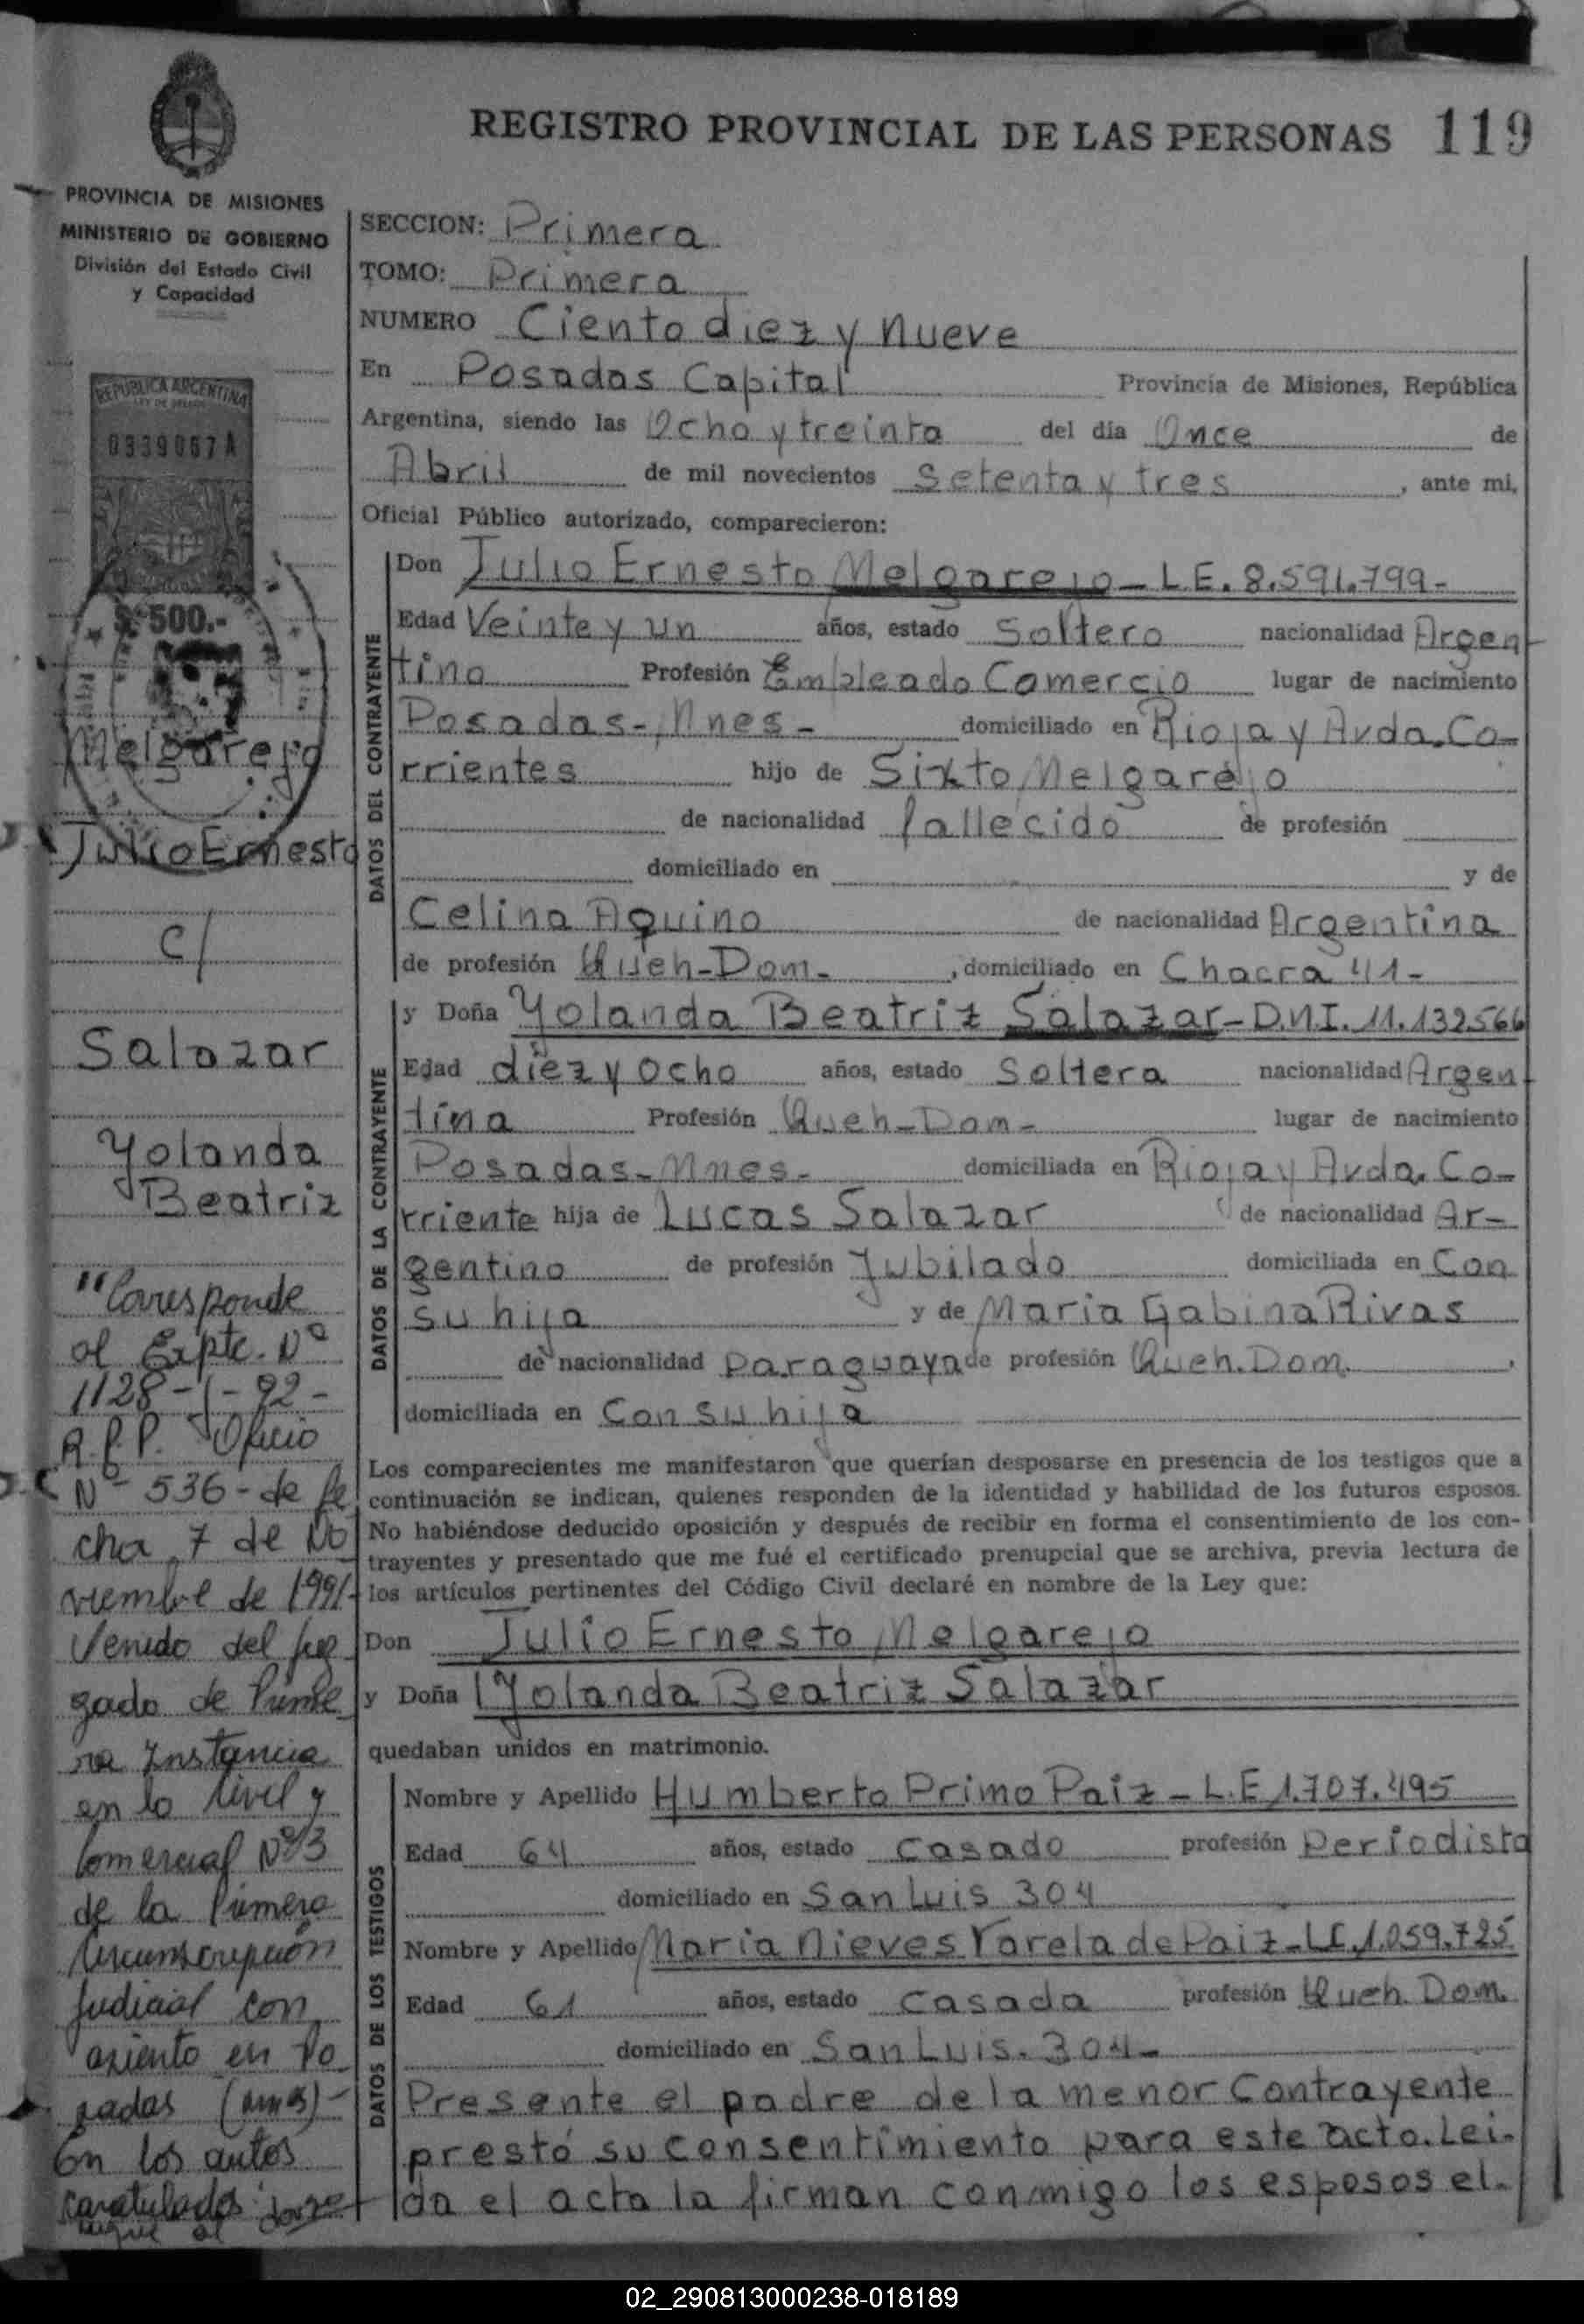 REGISTRO PROVINCIAL DE LAS PERSONAS 119
PROVINCIA DE MISIONES
MINISTERIO DE GOBIERNO
División del Estado Civil
y Capacidad
REPUBLICA ARGENTINA
0339067 A
$ 500.-
Melgarejo
Julio Ernesto
c/
Salazar
Yolanda
Beatriz
"Corresponde
al Expte. Nº
1128-1-92-
R.P.P. Oficio
Nº 536-de fe
cha 7 de No
viembre de 1991-
Venido del Juz
gado de Prime
ra Instancia
en lo Civil y
Comercial Nº 3
de la Primera
Circunscripción
Judicial con
asiento en Po
sadas (Mnes)-
En los autos
caratulados:
SECCION: Primera
TOMO: Primera
NUMERO Ciento diez y nueve
En Posadas Capital Provincia de Misiones, República
Argentina, siendo las Ocho y treinta del día Once de
Abril de mil novecientos Setenta y tres, ante mi,
Oficial Público autorizado, comparecieron:
DATOS DEL CONTRAYENTE
Don Julio Ernesto Melgarejo - L.E. 8.591.799-
Edad Veinte y un años, estado Soltero nacionalidad Argen-
tino Profesión Empleado Comercio lugar de nacimiento
Posadas-Mnes- domiciliado en Rioja y Avda. Co-
rrientes hijo de Sixto Melgarejo
de nacionalidad fallecido de profesión
domiciliado en y de
Celina Aquino de nacionalidad Argentina
de profesión Queh-Dom-, domiciliado en Chacra 41-
DATOS DE LA CONTRAYENTE
y Doña Yolanda Beatriz Salazar - D.N.I. 11.132566
Edad diez y ocho años, estado Soltera nacionalidad Argen-
tina Profesión Queh-Dom- lugar de nacimiento
Posadas-Mnes- domiciliada en Rioja y Avda. Co-
rriente hija de Lucas Salazar de nacionalidad Ar-
gentino de profesión Jubilado domiciliada en Con
su hija y de Maria Gabina Rivas
de nacionalidad Paraguaya de profesión Queh. Dom.,
domiciliada en Con su hija
Los comparecientes me manifestaron que querían desposarse en presencia de los testigos que a
continuación se indican, quienes responden de la identidad y habilidad de los futuros esposos.
No habiéndose deducido oposición y después de recibir en forma el consentimiento de los con-
trayentes y presentado que me fué el certificado prenupcial que se archiva, previa lectura de
los artículos pertinentes del Código Civil declaré en nombre de la Ley que:
Don Julio Ernesto Melgarejo
y Doña Yolanda Beatriz Salazar
quedaban unidos en matrimonio.
DATOS DE LOS TESTIGOS
Nombre y Apellido Humberto Primo Paiz - L.E 1.707.495
Edad 64 años, estado Casado profesión Periodista
domiciliado en San Luis 304
Nombre y Apellido Maria Nieves Varela de Paiz - L.C. 1.059.725
Edad 61 años, estado Casada profesión Queh. Dom.
domiciliado en San Luis. 304-
Presente el padre de la menor Contrayente
prestó su consentimiento para este acto. Lei-
da el acta la firman conmigo los esposos el-
02_290813000238-018189